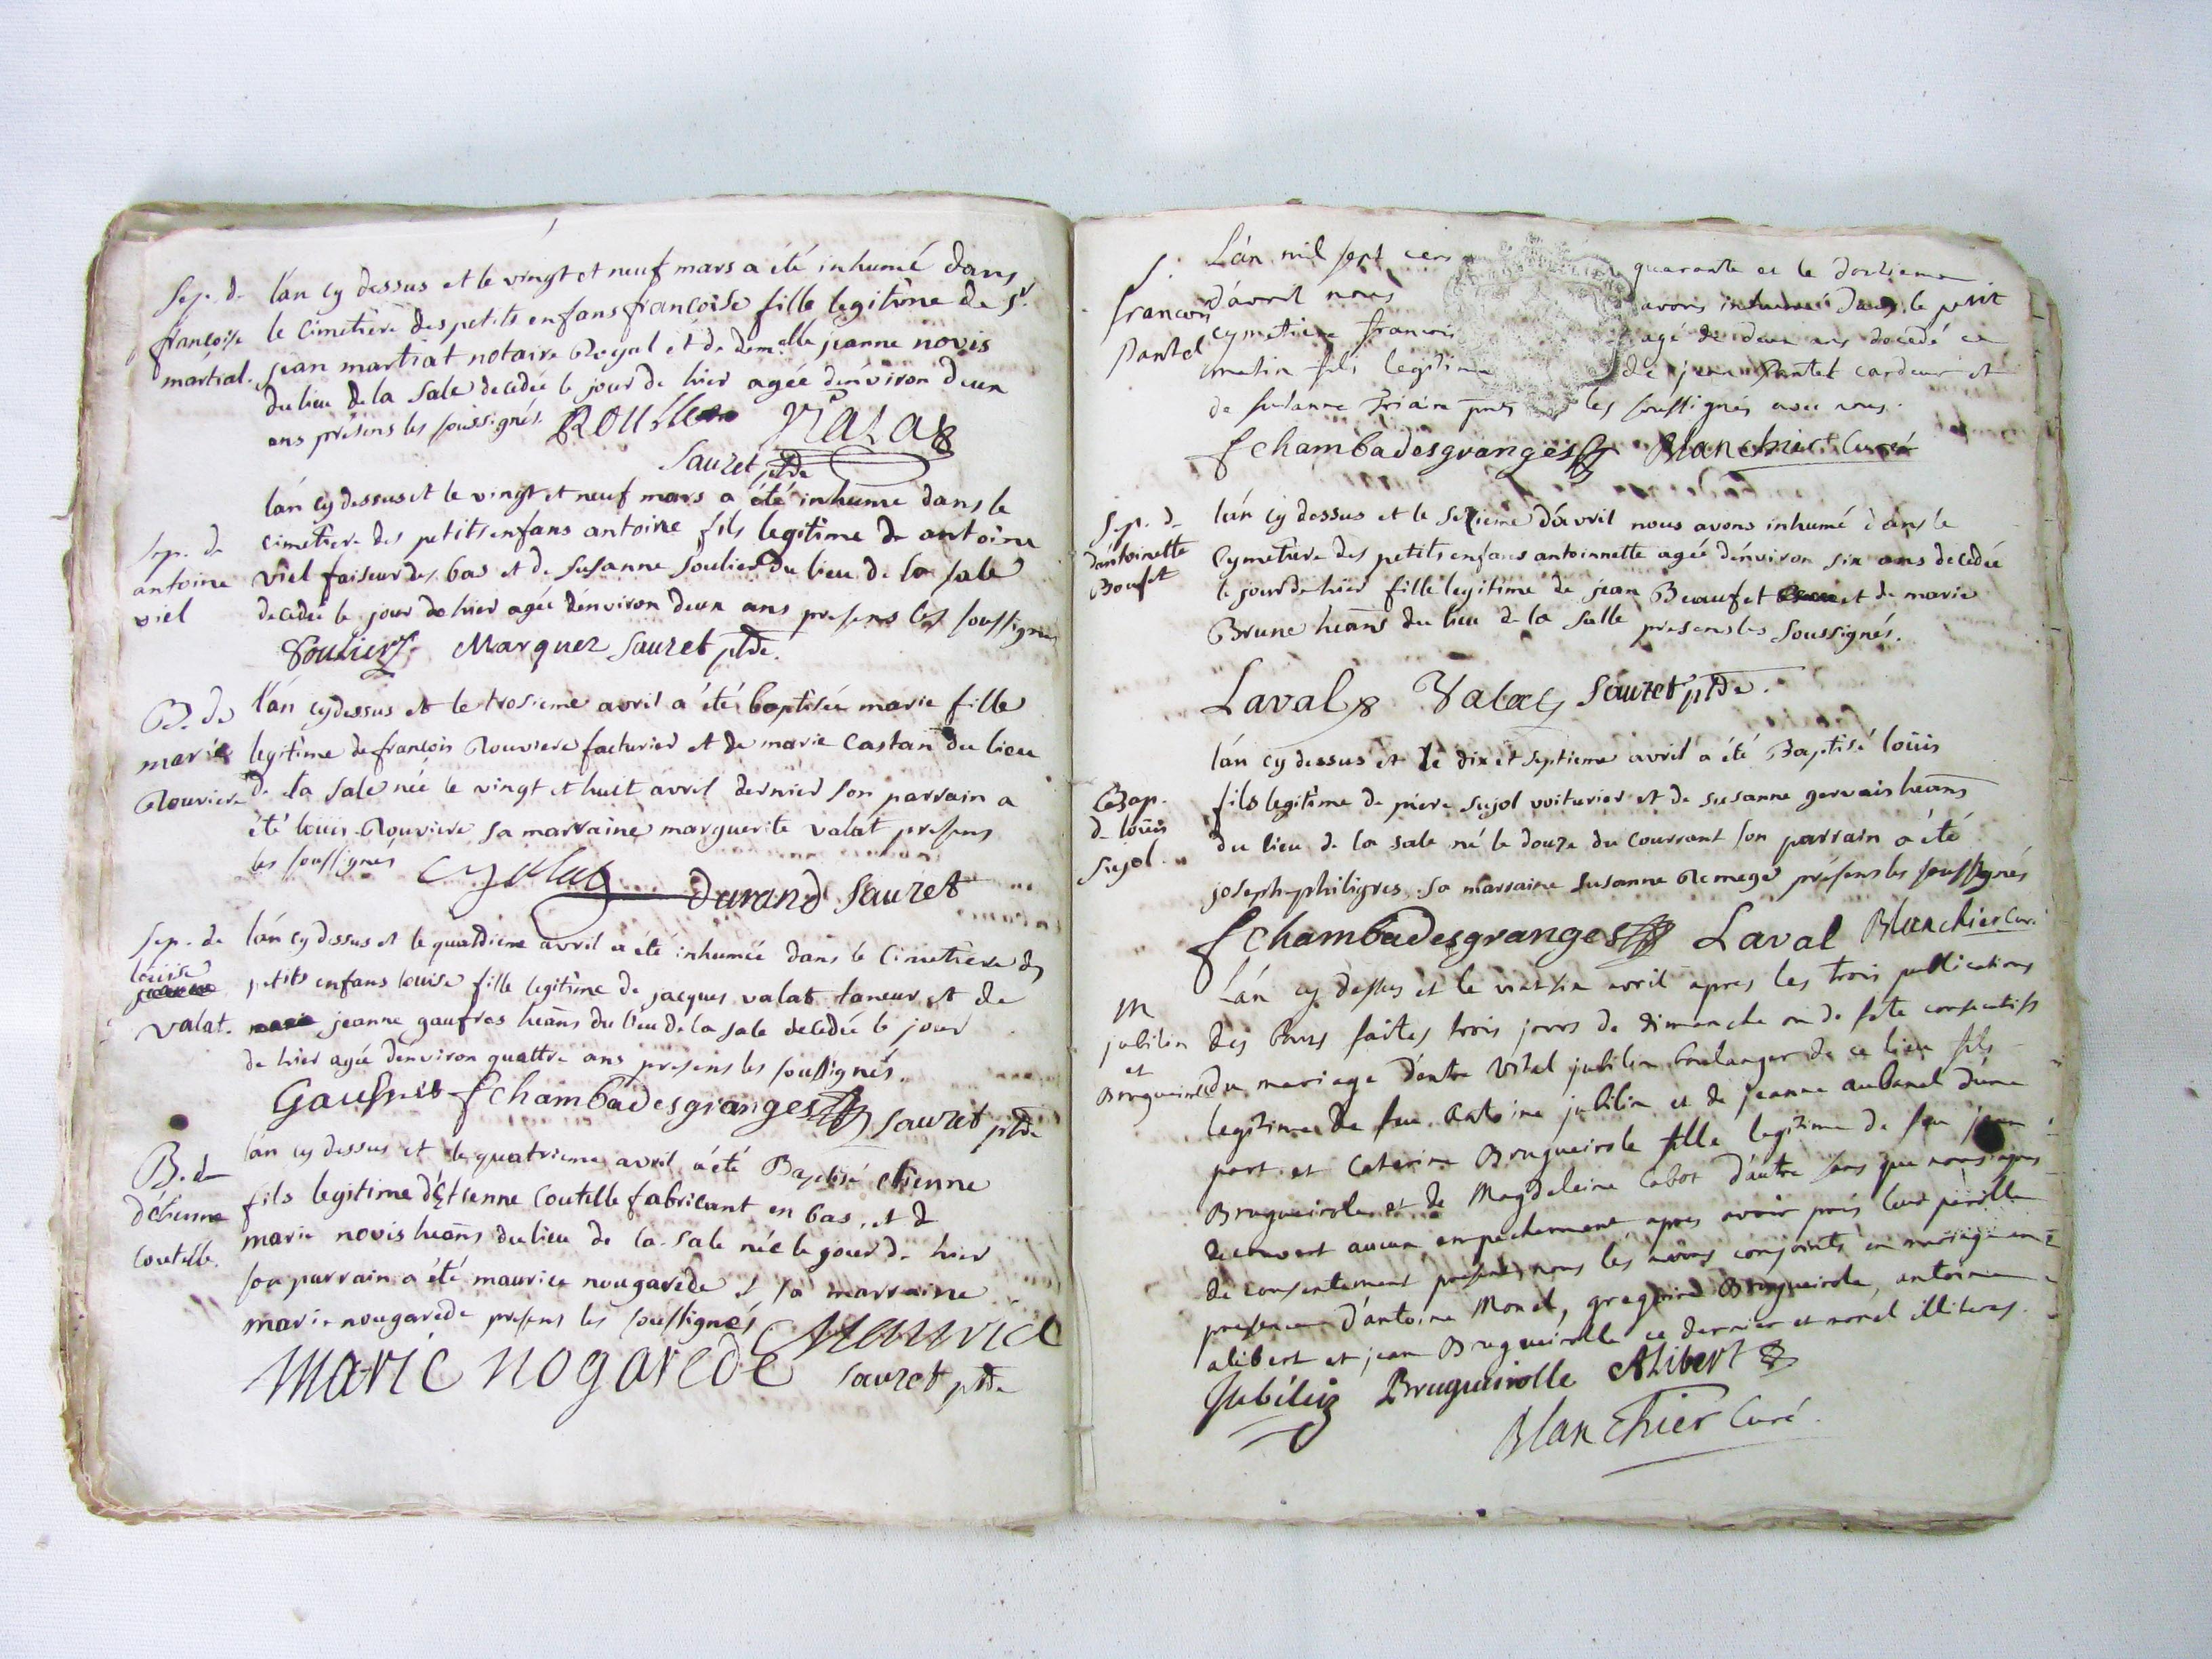 Sep. de
françoise
martial.
l'án cy dessus et le vingt et neuf mars a été inhumé dans
le cimetiere des petits enfans françoise fille legitime de Sr.
jean martiat notaire Royal et de demelle jeanne novis
du lieu de la Sale decedée le jour de hier agée d'énviron deux
ans présens les soussignés.
Sauzet ptre
Sep. de
antoine
viel
l'án cy dessus et le vingt et neuf mars a été inhume dans le
cimetiere des petits enfans antoine fils legitime de antoine
viel faiseur des bas et de Susanne Soulier du lieu de la sale
decedée le jour de hier agée d'énviron deux ans presens les soussignés
Soulier Marquez Sauzet ptre.
B. de
marie
Rouviere
l'án cy dessus et le trosieme avril a été baptisée marie fille
legitime de françois Rouviere facturier et de marie Castan du lieu
de la Sale née le vingt et huit avril dernier son parrain a
été louis Rouviere sa marraine marguerite valat presens
les soussignés
Durand Sauzet
Sep. de
louise
valat.
l'án cy dessus et le quatrieme avril a été inhumée dans le Cimetiere des
petits enfans louise fille legitime de jacques valat taneur et de
jeanne gaufres heans du lieu de la sale decedée le jour
de hier agée d'énviron quattre ans presens les soussignés.
fchambadesgranges Sauzet ptre
B. de
d'étienne
Coutelle.
l'án cy dessus et le quatrieme avril a été Baptisé etienne
fils legitime d'Etienne Coutelle fabricant en bas, et de
marie novis heans du lieu de la Sale née le jour de hier
son parrain a été maurice nougarede et sa marraine
marie nougarede presens les soussignés
Maurice
Marie nogarede Sauzet ptre
S.
francois
Pantel
L'án mil sept cens quarante et le dousieme
d'avril nous avons inhumé dans le petit
cymetiere francois agé de deux ans decedé ce
matin fils legitime de jean Pantel cardeur et
de susanne Briain les soussignés avec nous.
fchambadesgranges Blanchier Curé
Sep. de
d'ántoinette
Boufet
l'án cy dessus et le sezieme d'ávril nous avons inhumé dans le
Cymetiere des petits enfans antoinnette agée d'énviron six ans decedée
le jour de hier fille legitime de jean Beaufet et de marie
Brune heans du lieu de la Salle presens les Soussignés.
Laval Valat Sauzet ptre.
Bap.
de loüis
Sujol.
l'án cy dessus et le dix et septieme avril a été Baptisé loüis
fils legitime de piere Sujol voiturier et de Susanne gervais heans
du lieu de la Sale né le douze du courrant son parrain a été
joseph philigres. sa marraine Susanne Remege présens les soussignés
fchambadesgranges Laval Blanchier Curé
M
jubilin
et
Brugueirole
L'án cy dessus et le vint six avril apres les trois publications
des bans faites trois jours de dimanche ou de fete consecutifs
du mariage d'entre Vital jubilin boulanger de ce lieu fils
legitime de feu Antoine jubilin et de jeanne aubanel d'une
part et Caterine Brugueirole fille legitime de feu jean
Brugueirole et de Magdeleine Cabot d'autre sans que nous ayons
decouvert aucun empechement apres avoir pris leur
de consentement nous les avons conjoints en mariage en
presence d'antoine Monel, gregoire Brugueirole, antoine
alibert et jean Brugueirolle ce dernier et monel illiteres.
Jubilin Brugueirolle Alibert
Blanchier Curé.